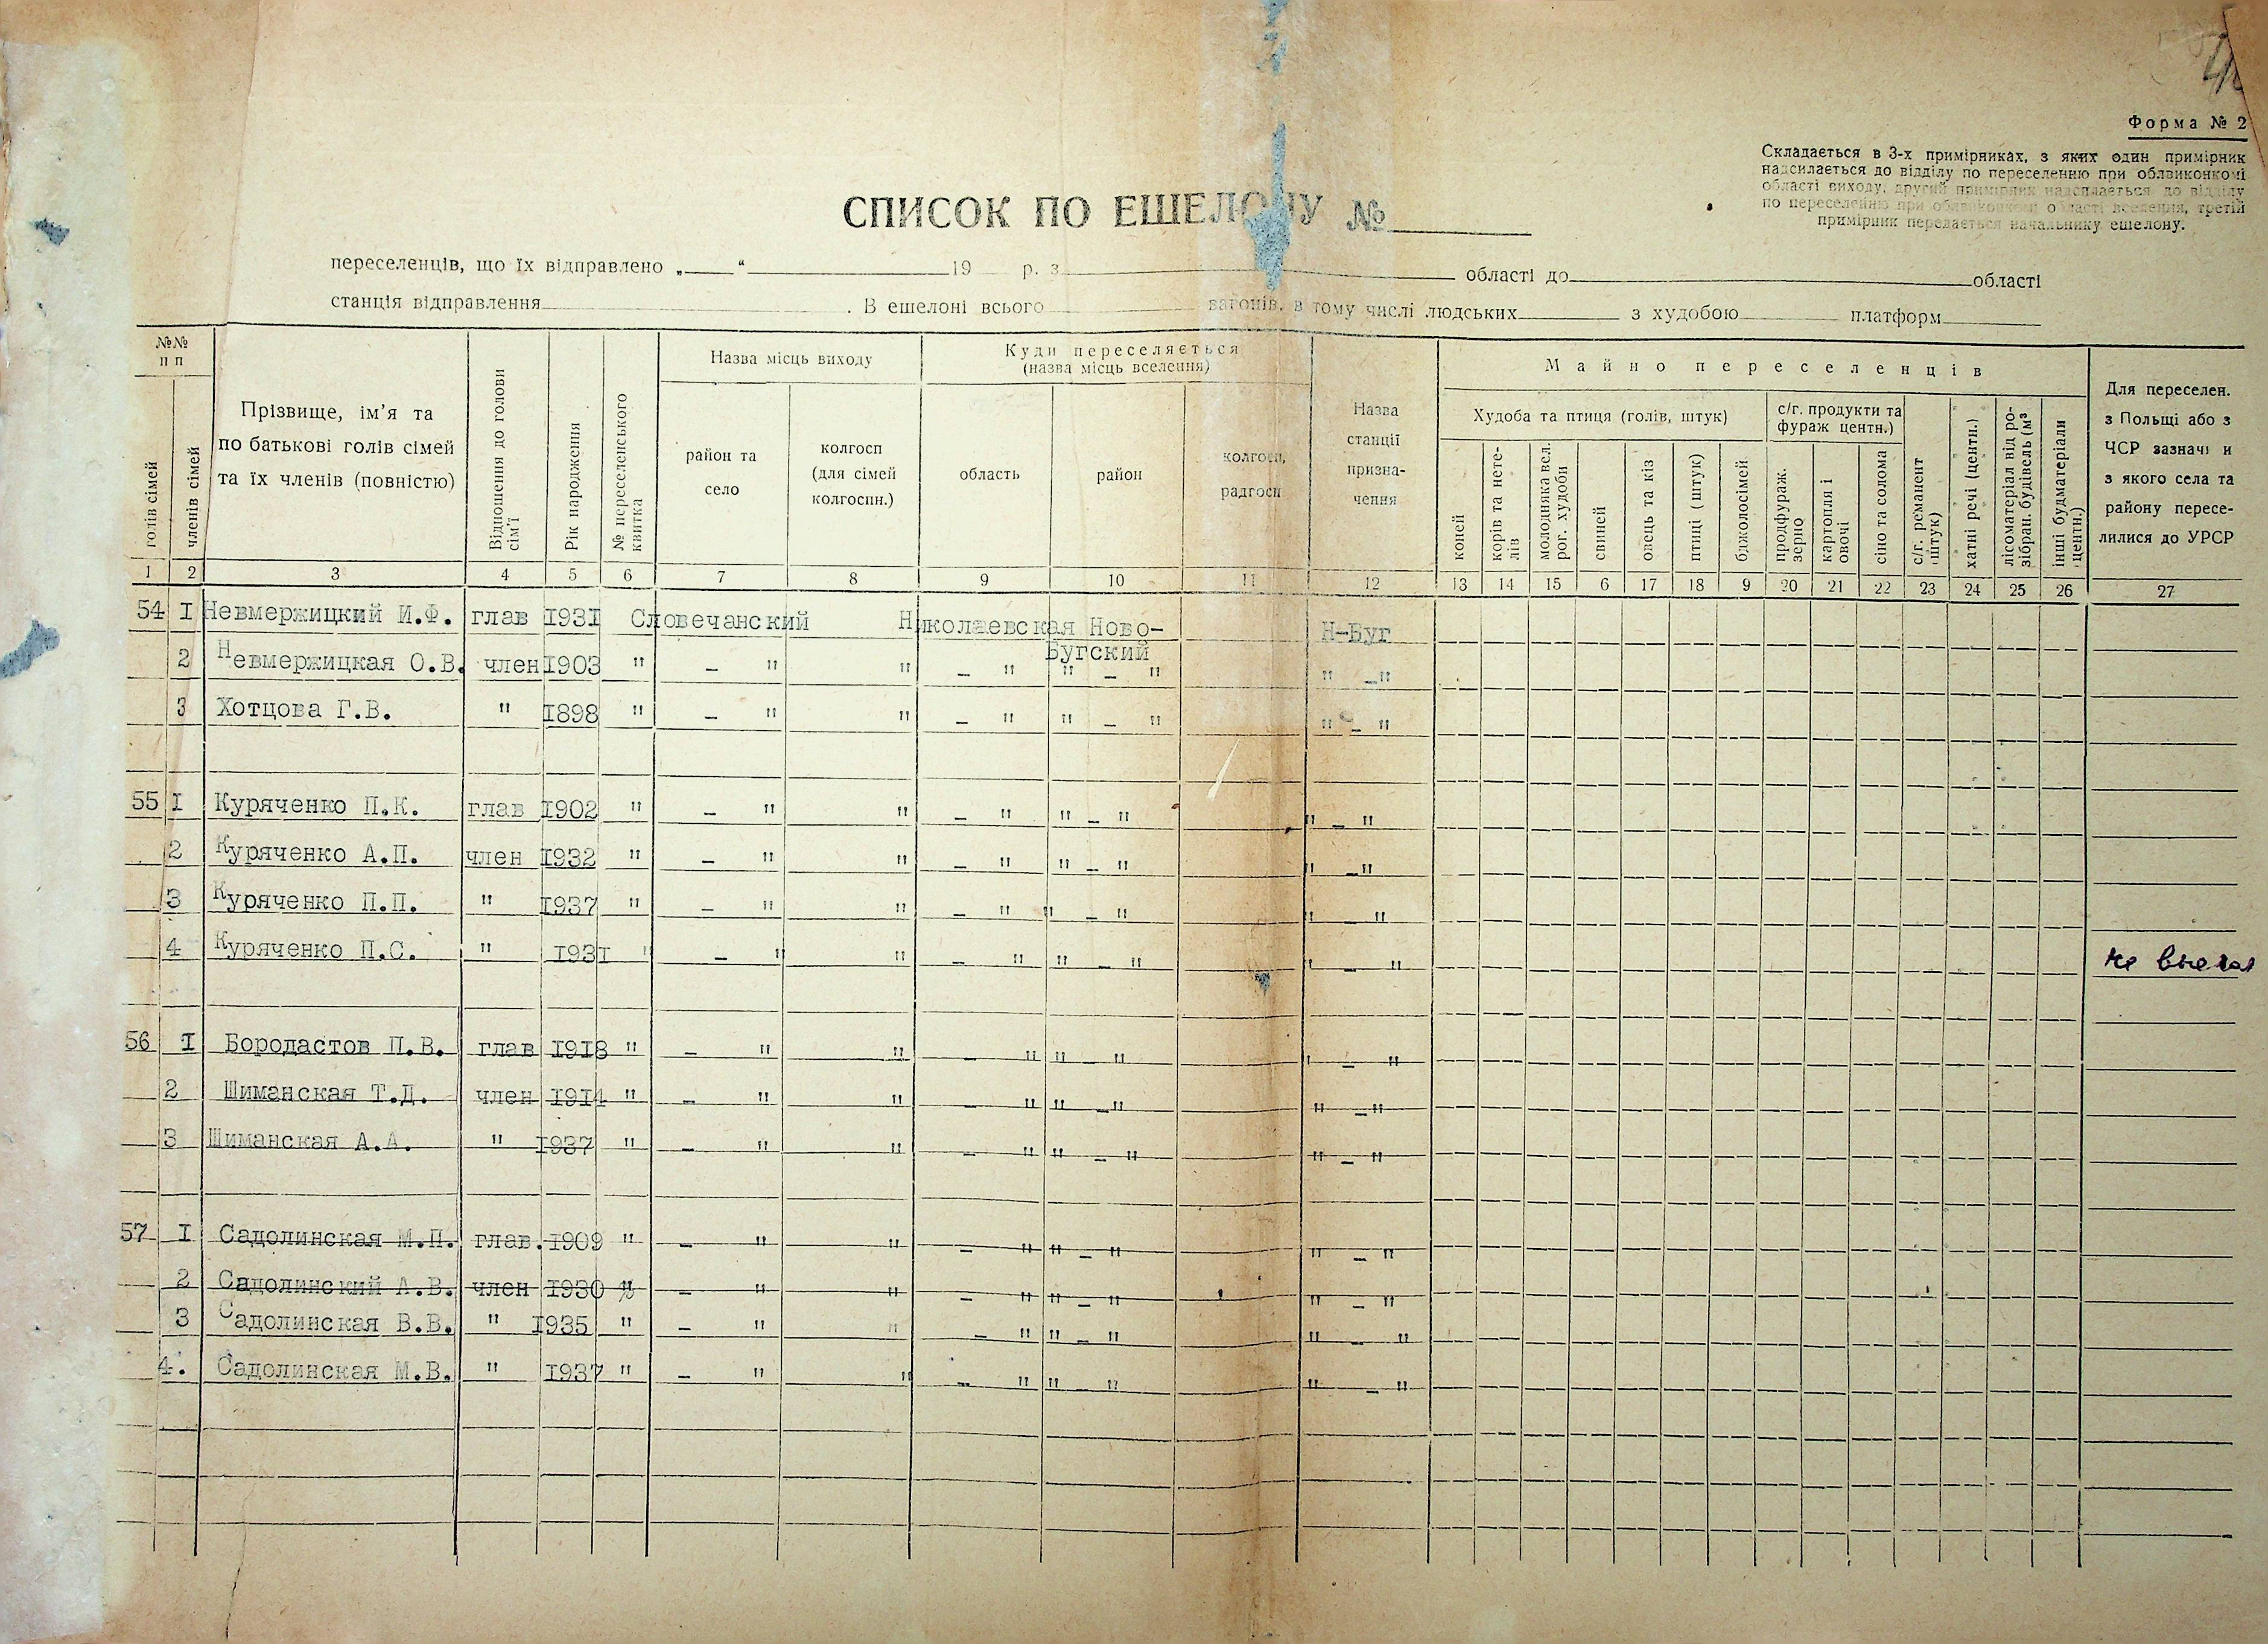 Форма № 2
Складається в 3-х примірниках, з яких один примірник
надсилається до відділу по переселенню при облвиконкомі
області виходу, другий примірник надсилається до відділу
по переселенню при облвиконкомі області вселення, третій
примірник передається начальнику ешелону.
СПИСОК ПО ЕШЕЛОНУ №
переселенців, що їх відправлено „ “ 19 р. з області до області
станція відправлення . В ешелоні всього вагонів, в тому числі людських з худобою платформ
№№ п п
голів сімей
членів сімей
Прізвище, ім’я та
по батькові голів сімей
та їх членів (повністю)
Відношення до голови
сім’ї
Рік народження
№ переселенського
квитка
Назва місць виходу
район та
село
колгосп
(для сімей
колгоспн.)
Куди переселяється
(назва місць вселення)
область
район
колгосп,
радгосп
Назва
станції
призна-
чення
Майно переселенців
Худоба та птиця (голів, штук)
коней
корів та нете-
лів
молодняка вел.
рог. худоби
свиней
овець та кіз
птиці (штук)
бджолосімей
с/г. продукти та
фураж центн.)
продфураж.
зерно
картопля і
овочі
сіно та солома
с/г. реманент
штук)
хатні речі (центн.)
лісоматеріал від ро-
зібран. будівель (м3
інші будматеріали
центн.)
Для переселен.
з Польщі або з
ЧСР зазначи и
з якого села та
району пересе-
лилися до УРСР
1 2 3 4 5 6 7 8 9 10 11 12 13 14 15 6 17 18 9 20 21 22 23 24 25 26 27
54 I Невмержицкий И.Ф. глав 1931 Словечанский Николаевская Ново- Н-Буг
Бугский
2 Невмержицкая О.В. член 1903 " – " " – " " – " " –"
3 Хотцова Г.В. " 1898 " – " " – " " – " " – "
55 I Куряченко П.К. глав 1902 " – " " – " " – " " – "
2 Куряченко А.П. член 1932 " – " " – " " – " " –"
3 Куряченко П.П. " 1937 " – " " – " " – " " – "
4 Куряченко П.С. " 1931 " – " " – " " – " " – "
не
56 I Бородастов П.В. глав 1918 " – " " – " " – " " – "
2 Шиманская Т.Д. член 1914 " – " " – " " –" " –"
3 Шиманская А.А. " 1937 " – " " – " " – " " – "
57 I Садолинская М.П. глав. 1909 " – " " – " " – " " – "
2 Садолинский А.В. член 1930 " – " " – " " – " " – "
3 Садолинская В.В. " 1935 " – " " – " " – " " – "
4. Садолинская М.В. " 1937 " – " " – " " – " " – "